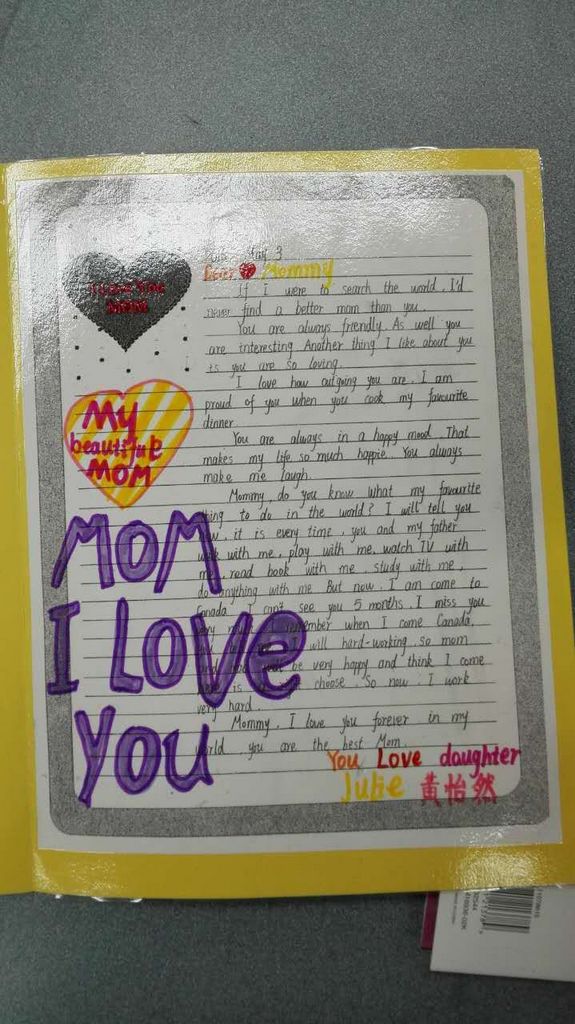 day 3
Dear Mommy
I Love You
MOM
If I were to search the world, I'd
never find a better mom than you.
You are always friendly. As well you
are interesting Another thing I like about you
is you are so loving.
I love how outgoing you are. I am
proud of you when you cook my favourite
dinner.
My
beautiful
MOM
You are always in a happy mood. That
makes my life so much happie. You always
make me laugh.
Mommy, do you know what my favourite
thing to do in the world? I will tell you
it is every time, you and my father
with me, play with me, watch TV with
me, read book with me, study with me,
do anything with me But now, I am come to
Canada, I can't see you 5 months. I miss you
very remember when I come Canada,
will hard-working, so mom
be very happy and think I come
is choose. So now, I work
very hard.
Mommy, I love you forever in my
world you are the best Mom
MOM
I Love
You
You Love daughter
Julie 黄怡然